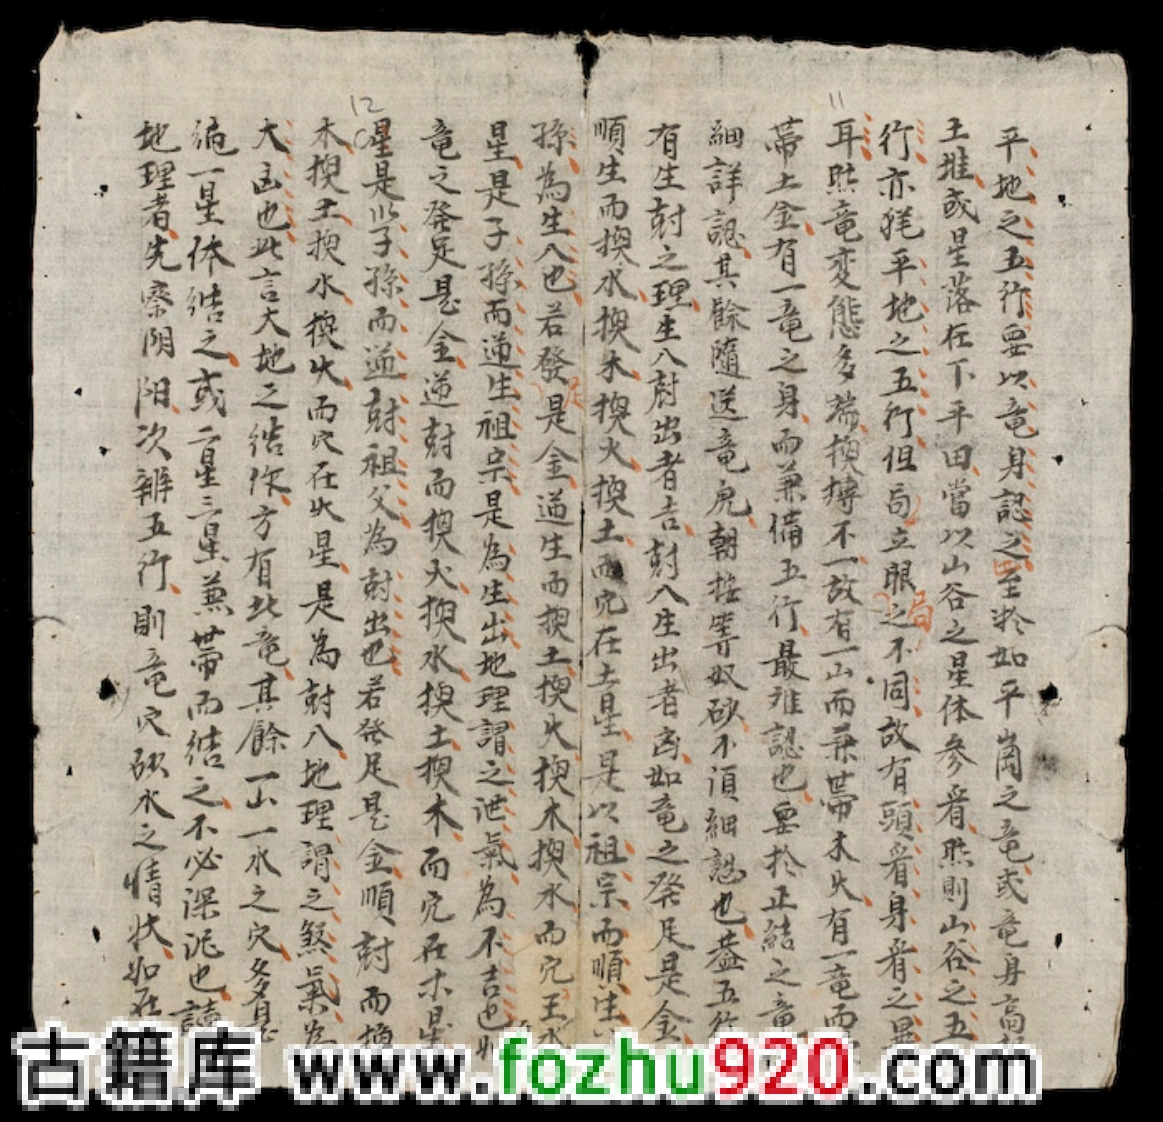 11
12
平地之五行要以竜身認之至於如平崗之竜或竜身高
土堆或星落在下平田當以山谷之星体参看𤋮則山谷之五
行亦猶平地之五行但局立眼之不同故有頭看身看之異
耳𤋮竜変態多端換摶不一故有一山而兼帶木火有一竜而
帶土金有一竜之身而兼備五行最难認也要於正結之竜
細詳認其餘隨送竜虎朝按等奴砂不須細認也盖五行
有生尅之理生入尅出者吉尅入生出者凶如竜之発足是金
順生而換水換木換火換土而穴在土星是以祖宗而順生
孫為生入也若發足是金逆生而換土換火換木換水而穴王水
星是子孫而逆生祖宗是為生出地理謂之泄氣為不吉也如
竜之発足是金逆尅而換火換水換土換木而穴在木星
星是以子孫而逆尅祖父為尅出也若発足是金順尅而換
木換土換水換火而穴在火星是為尅入地理謂之煞氣為
大凶也此言大地之結作方有此竜其餘一山一水之穴多是
編一星体結之或二星三星兼帶而結之不必深泥也讀
地理者先察陰阳次辨五行則竜穴砂水之情状如在
古籍库 www.fozhu920.com